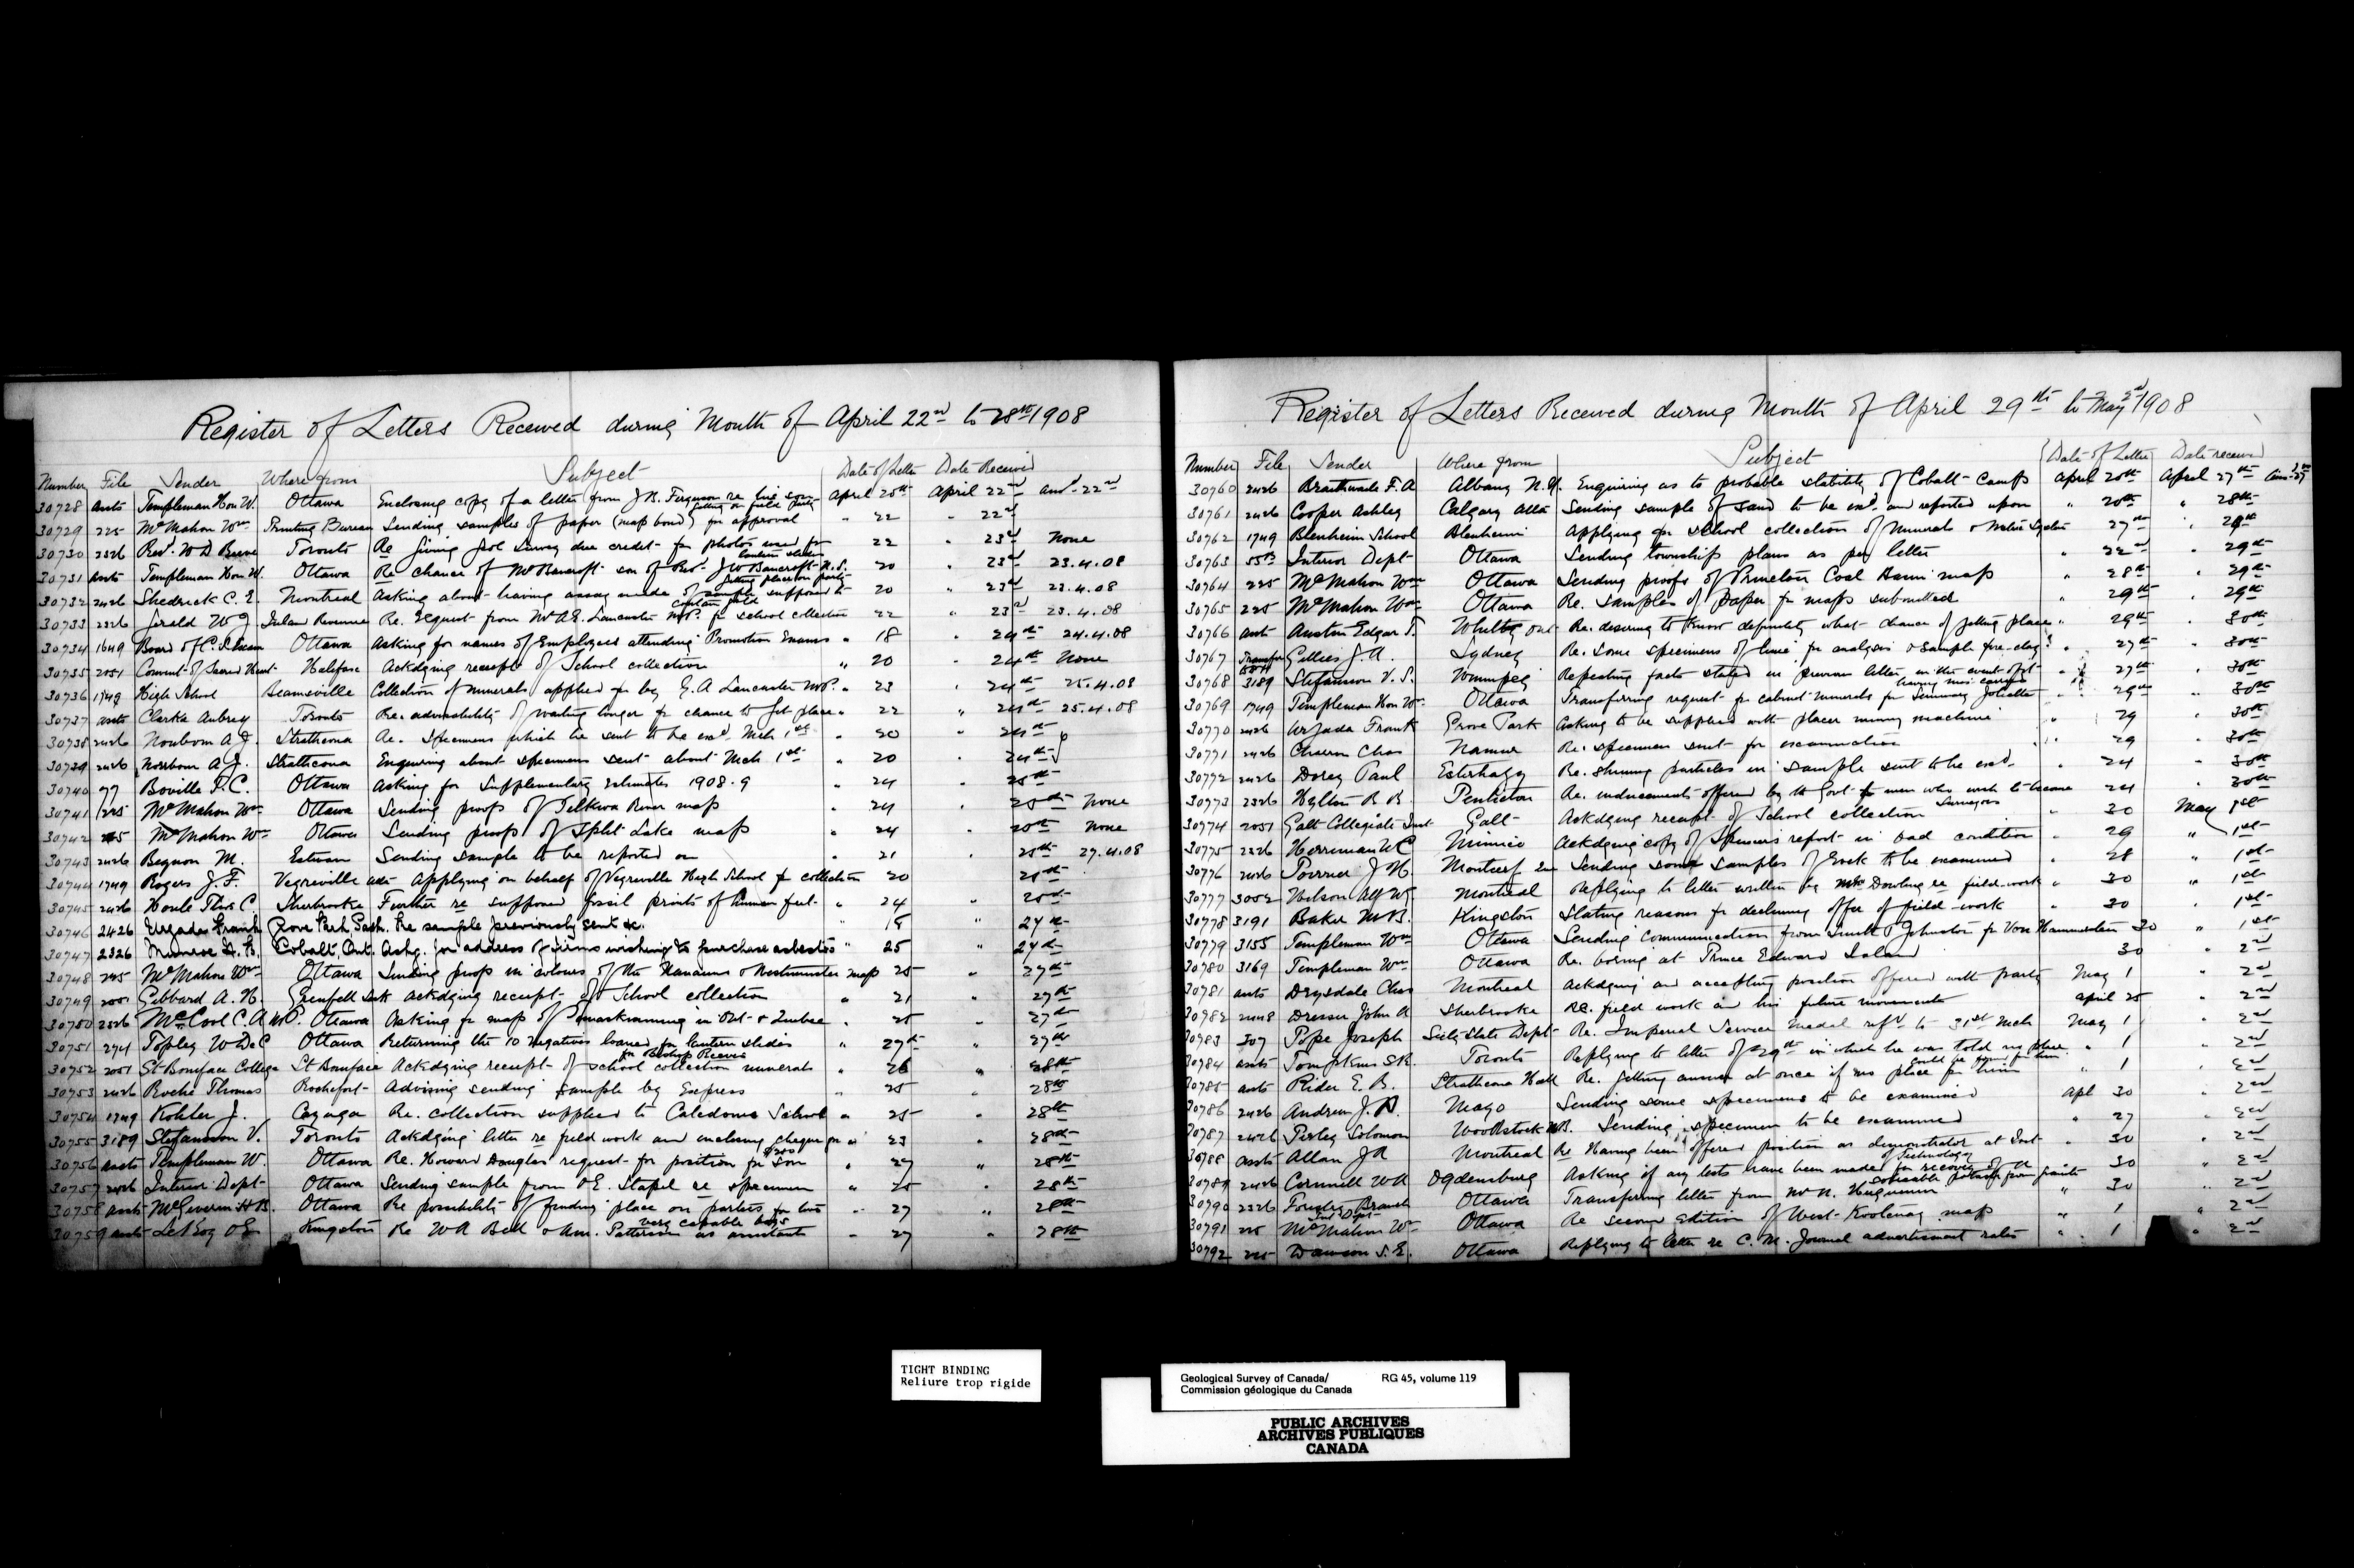 Register of Letters Received during Month of April 22nd to 28th 1908
Number File Sender Where from Subject Date of Letter Date Received
30728 assts Templeman Hon W. Ottawa Enclosing copy of a letter from J.B. Ferguson re his son getting on field party April 20th April 22nd ansd 22nd
30729 225 McMahon Wm Printing Bureau Sending samples of paper (map bond) for approval " 22 " 22nd
30730 2326 Revd. W D Toronto Re giving Geol Survey due credit for photos used for lantern slides 22 " 23rd None
30731 assts Templeman Hon W. Ottawa Re chance of Mr Bancroft son of Rev. J W Bancroft N.S. getting place on party 20 " 23rd 23.4.08
30732 2426 Shedrick C. E. Montreal Asking about having assay made of sample supposed to contain gold 20 " 23rd 23.4.08
30733 2326 Gerald W J Inland Revenue Re. request from Mr A E. Lancaster M.P. for school collection 22 " 23rd 23.4.08
30734 1649 Board of C. S. Exam Ottawa Asking for names of Employees attending Promotion Exams " 18 " 24th 24.4.08
30735 2051 Convent of Sacred Heart Halifax Ackdging receipt of School collection " 20 " 24th None
30736 1749 High School Beamsville Collection of minerals applied for by E. A Lancaster M.P. " 23 " 24th 25.4.08
30737 assts Clarke Aubrey Toronto Re. advisability of waiting longer for chance to get place " 22 " 24th 25.4.08
30738 2426 A J. Strathcona Re. specimens which he sent to be exd. Mch 1st " 20 24th
30739 2426 A J. Strathcona Enquiring about specimens sent about Mch 1st " 20 " 24th
30740 77 Boville T. C. Ottawa Asking for Supplementary Estimates 1908-9 " 24 " 25th
30741 225 McMahon Wm Ottawa Sending proof of Telkwa River map " 24 " 25th None
30742 225 McMahon Wm Ottawa Sending proof of Split Lake map " 24 " 25th None
30743 2426 M. Estevan Sending sample to be reported on " 21 " 25th 27.4.08
30744 1749 Rogers J. F. Vegreville Alta Applying on behalf of Vegreville High School for collection 20 25th
30745 2426 Houle Thos C. Sherbrooke Further re supposed fossil prints of human feet " 24 " 25th
30746 2426 Urzada Frank Grove Park, Sask. Re sample previously sent &c. " 18 " 27th
30747 2326 Munroe H. Cobalt, Ont. Askg. for address of firms wishing to purchase asbestos " 25 " 27th
30748 225 McMahon Wm Ottawa Sending proof in colours of the Nanaimo & Westminster map 25 " 27th
30749 2051 Gibbard A. H. Grenfell Sask Ackdging receipt of School collection " 21 " 27th
30750 2326 McCool C. A M.P. Ottawa Asking for map of in Ont & Quebec " 25 " 27th
30751 274 Topley W DeC Ottawa Returning the 10 negatives loaned for lantern slides for Bishop Reeve " 27th 27th
30752 2051 St Boniface College St Boniface Ackdging receipt of school collection minerals " 26 " 28th
30753 2426 Roche Thomas Rochefort Advising sending sample by Express " 25 " 28th
30754 1749 Kohler J. Cayuga Re. collection supplied to Caledonia School " 25 " 28th
30755 3189 Stefansson V. Toronto Ackdging letter re field work and enclosing cheque for $200 " 23 " 28th
30756 assts Templeman W. Ottawa Re. Howard Douglas request for position for Son " 27 " 28th
30757 2426 Interior Dept Ottawa Sending sample from O E. Stapel re specimen " 25 " 28th
30758 assts McGiverin H B. Ottawa Re possibility of finding place on parties for two very capable boys " 27 " 28th
30759 assts LeRoy O E Kingston Re W A Bell & Am. Patterson as assistants " 27 " 28th
Register of Letters Received during Month of April 29th to May 2nd 1908
Number File Sender Where from Subject Date of Letter Date received
30760 2426 Braithwaite F. A Albany N.Y. Enquiring as to probable stability of Cobalt Camp April 20th April 27th
30761 2426 Cooper Ashley Calgary Alta Sending sample of sand to be exd. and reported upon " 20th " 28th
30762 1749 Blenheim School Blenheim Applying for school collection of minerals 27th " 29th
30763 55B Interior Dept Ottawa Sending township plans as per letter " 22nd " 29th
30764 225 McMahon Wm Ottawa Sending proofs of Princeton Coal Basin map " 28th " 29th
30765 225 McMahon Wm Ottawa Re. samples of paper for maps submitted " 29th " 29th
30766 asst Austin Edgar T. Whitby Ont Re. desiring to know definitely what chance of getting place " 29th " 30th
30767 Transfer Gillies J. A. Sydney Re. some specimens of lime for analysis & sample fire-clay " 27th " 30th
30768 3189 Stefansson V. S. Winnipeg Repeating facts stated in previous letter in the event of it having mis-carried " 27th " 30th
30769 1749 Templeman Hon Wm Ottawa Transferring request for cabinet minerals for Seminary Joliette " 29th " 30th
30770 2426 Urzada Frank Grove Park Asking to be supplied with placer mining machine " 29 " 30th
30771 2426 Chas Namur Re. specimen sent for examination " 29 " 30th
30772 2426 Dorey Paul Esterhazy Re. shining particles in sample sent to be exd. " 24 " 30th
30773 2326 Hylton R B. Penticton Re. inducements offered by the Govt for men who wish to become Surveyors 24 " 30th
30774 2051 Galt Collegiate Inst Galt Ackdging receipt of School collection " 30 May 1st
30775 2326 Herriman W C Mimico Ackdging copy of report in bad condition " 29 " 1st
30776 2426 Poirier J H. Montcerf Que Sending some samples of rock to be examined " 28 " 1st
30777 3052 Wilson Alf W G. Montreal Replying to letter written by Mr Dowling re field-work " 30 " 1st
30778 3191 Baker M B. Kingston Stating reasons for declining offer of field-work " 30 " 1st
30779 3155 Templeman Wm Ottawa Sending communication from Smith & Johnston for Von Hammerstein 30 " 1st
30780 3169 Templeman Wm Ottawa Re. boring at Prince Edward Island 30 " 2nd
30781 assts Drysdale Chas Montreal Ackdging and accepting position offered with party May 1 " 2nd
30782 2448 Dresser John A Sherbrooke Re. field work and his future movements April 25 " 2nd
30783 307 Pope Joseph Secty State Dept Re. Imperial Service Medal refd. to 31st Mch May 1 " 2nd
30784 assts Tompkins S R. Toronto Replying to letter of 29th in which he was told no place could be found for him " 1 " 2nd
30785 assts Rider E. B. Strathcona Hall Re. getting answer at once if no place for him " 1 " 2nd
30786 2426 Andrew J. A. Mayo Sending some specimens to be examined Apl 30 " 2nd
30787 2426 Perley Solomon Woodstock N.B. Sending specimen to be examined " 27 " 2nd
30788 assts Allan J A Montreal Re Having been offered position as demonstrator at Inst of Technology " 30 " 2nd
30789 2426 Cornwell W A Ogdensburg Asking if any tests have been made for recovery of soluable potash from granite 30 " 2nd
30790 2326 Forestry Branch Int Dept Ottawa Transferring letter from Mr N. " 30 " 2nd
30791 225 McMahon Wm Ottawa Re second edition of West Kootenay map " 1 " 2nd
30792 225 Dawson S. E. Ottawa Replying to letter re C. M. Journal advertisment rates " 1 " 2nd
TIGHT BINDING
Reliure trop rigide
Geological Survey of Canada/ RG 45, volume 119
Commission géologique du Canada
PUBLIC ARCHIVES
ARCHIVES PUBLIQUES
CANADA